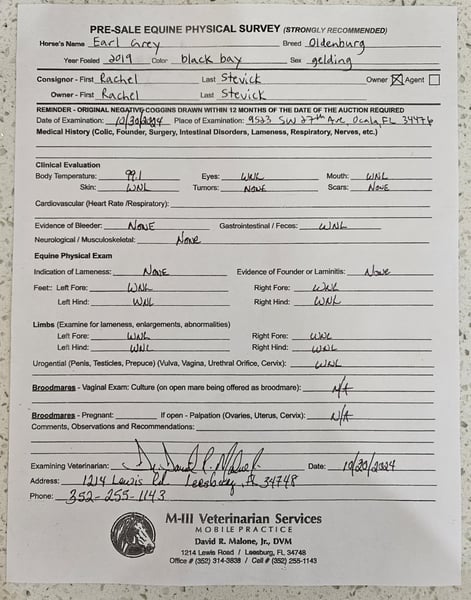 PRE-SALE EQUINE PHYSICAL SURVEY (STRONGLY RECOMMENDED)
Horse's Name Earl Grey Breed Oldenburg
Year Foaled 2019 Color black bay Sex gelding
Consignor - First Rachel Last Stevick Owner Agent
Owner - First Rachel Last Stevick
REMINDER - ORIGINAL NEGATIVE COGGINS DRAWN WITHIN 12 MONTHS OF THE DATE OF THE AUCTION REQUIRED
Date of Examination: 10/20/2024 Place of Examination: 9523 SW 27th Ave, Ocala, FL 34476
Medical History (Colic, Founder, Surgery, Intestinal Disorders, Lameness, Respiratory, Nerves, etc.)
Clinical Evaluation
Body Temperature: 99.1 Eyes: WNL Mouth: WNL
Skin: WNL Tumors: NONE Scars: NONE
Cardiovascular (Heart Rate /Respiratory):
Evidence of Bleeder: NONE Gastrointestinal / Feces: WNL
Neurological / Musculoskeletal: None
Equine Physical Exam
Indication of Lameness: NONE Evidence of Founder or Laminitis: None
Feet:: Left Fore: WNL Right Fore: WNL
Left Hind: WNL Right Hind: WNL
Limbs (Examine for lameness, enlargements, abnormalities)
Left Fore: WNL Right Fore: WNL
Left Hind: WNL Right Hind: WNL
Urogential (Penis, Testicles, Prepuce) (Vulva, Vagina, Urethral Orifice, Cervix): WNL
Broodmares - Vaginal Exam: Culture (on open mare being offered as broodmare): N/A
Broodmares - Pregnant: If open - Palpation (Ovaries, Uterus, Cervix): N/A
Comments, Observations and Recommendations:
Examining Veterinarian: Date: 10/20/2024
Address: 1214 Lewis Rd Leesburg, FL 34748
Phone: 352-255-1143
M-III Veterinarian Services
MOBILE PRACTICE
David R. Malone, Jr., DVM
1214 Lewis Road / Leesburg, FL 34748
Office # (352) 314-3838 / Cell # (352) 255-1143